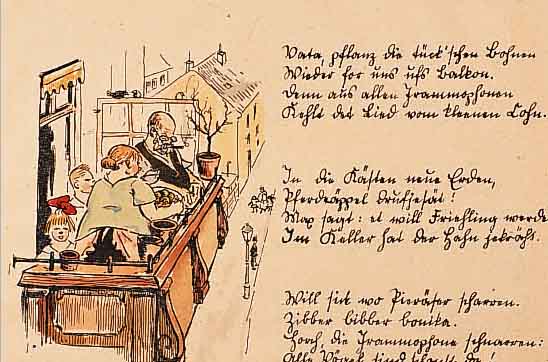 Vata, pflanz die türk'schen Bohnen
Wieder for uns ufs Balkon.
Denn aus allen Jrammophonen
Kehlt det Lied vom kleenen Cohn.
In die Kästen neue Erden,
Pferdeäppel drufjesät!
Max sagt: et will Friehling werde
Im Keller hat der Hahn jekräht.
Will sick wo scharren.
Zibber bibber bonika.
Horch, die Jrammophone schnarren:
Alle Vögel sind da!